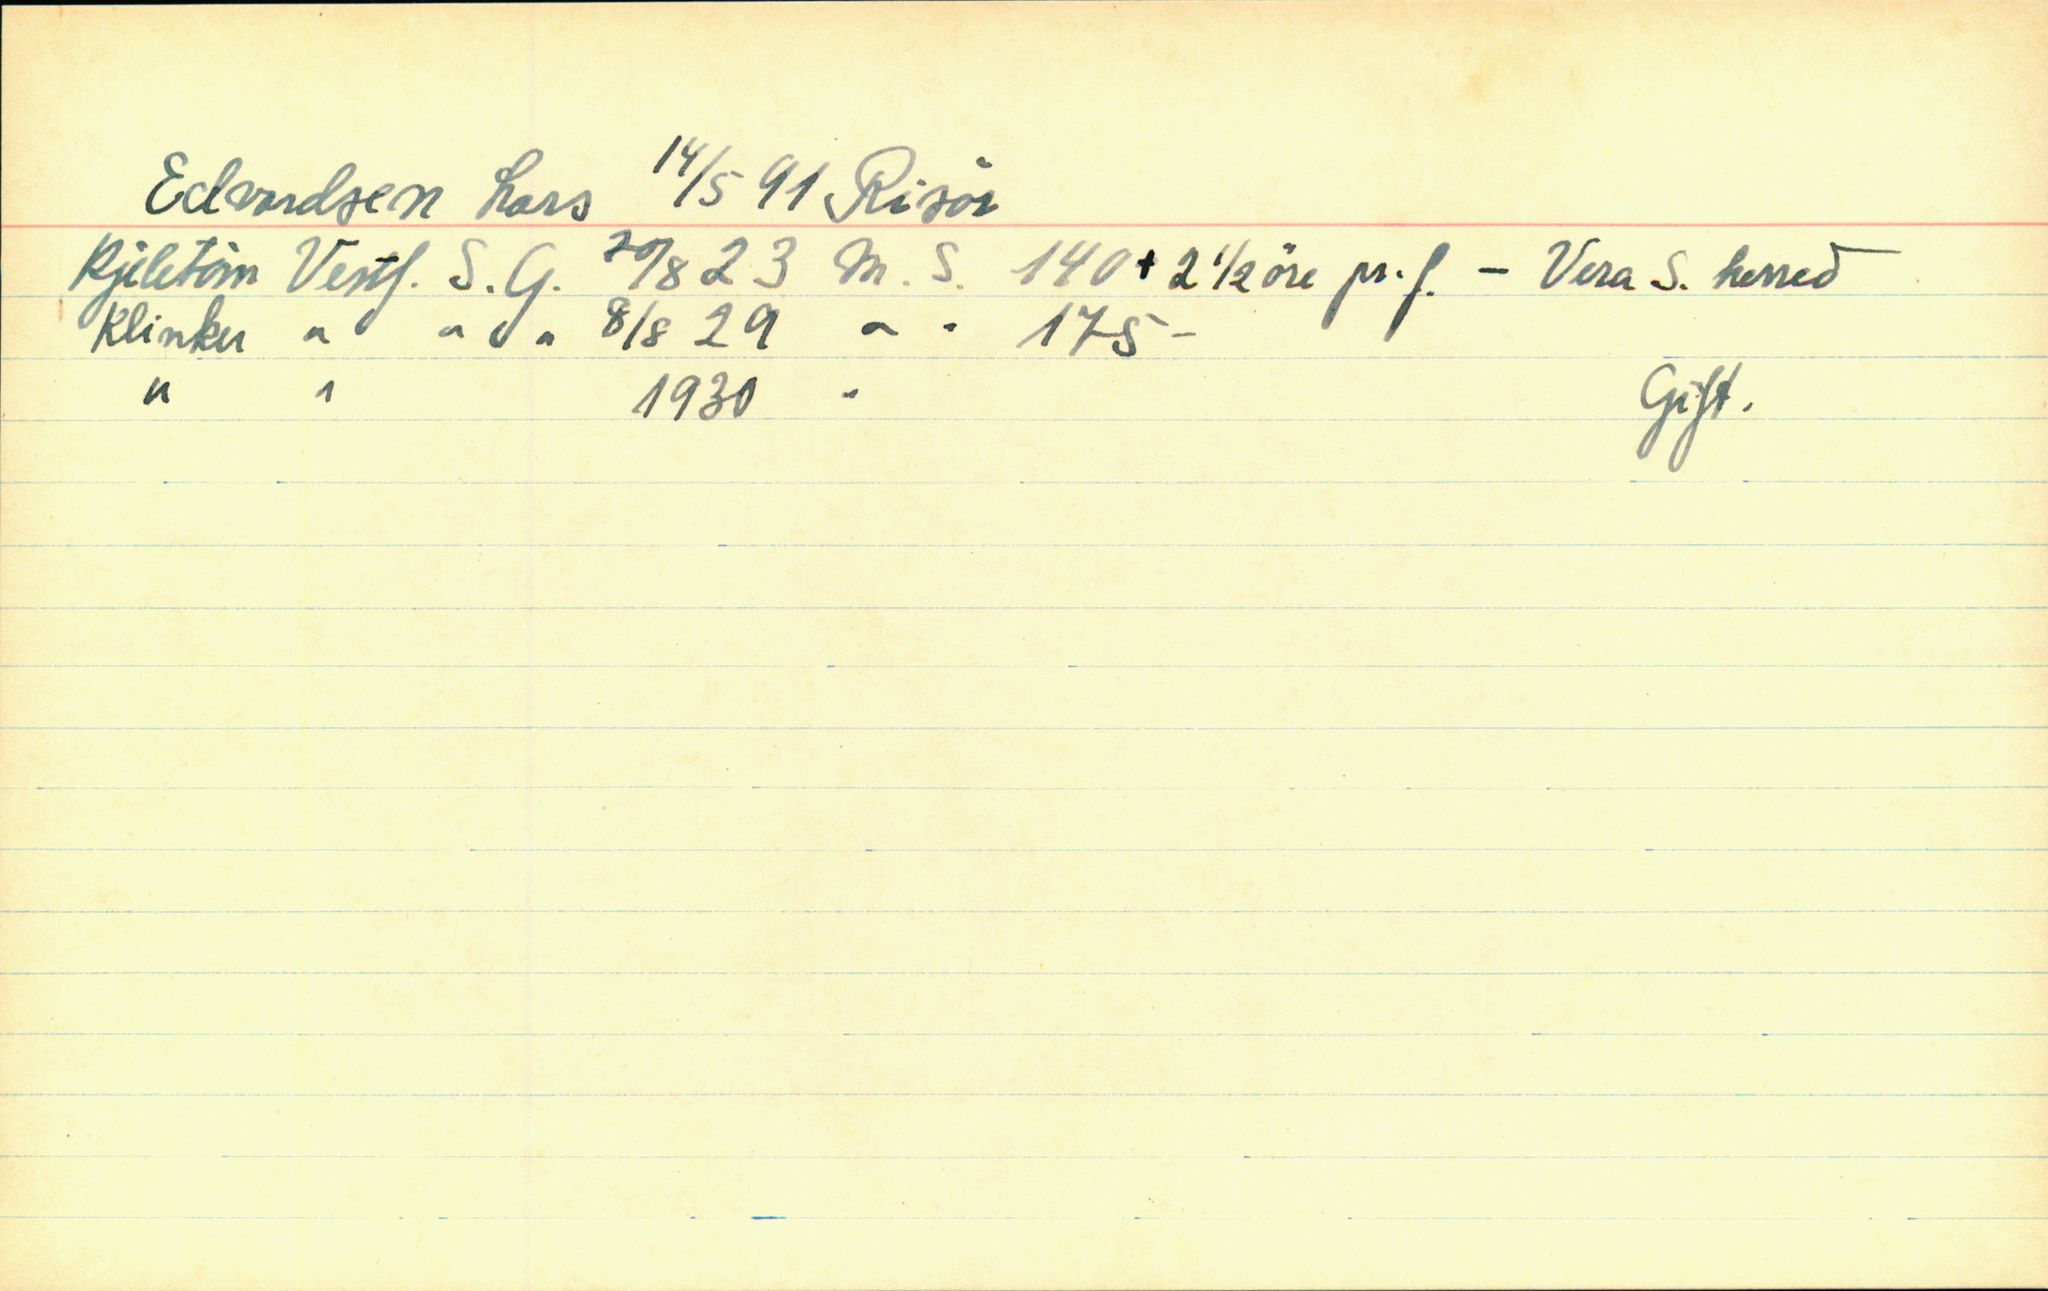 Edvardsen Lars 14/5 91 Risör
Kjeletöm Vestf. S. G. 20/8 23 M. S. 140 + 2 1/2 öre pr. f. - Vera S. herred
Klinker " " " 8/8 29 " " 175 -
" " 1930 " Gift.